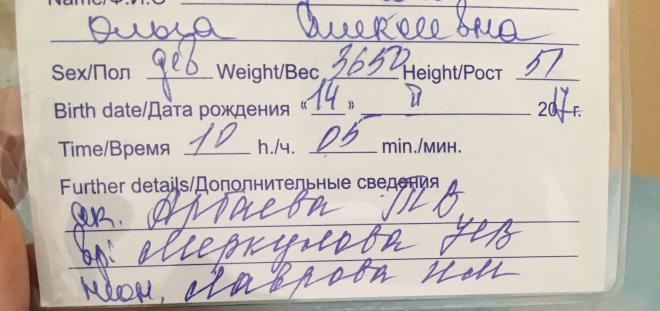 Name/Ф.И.О
Ольга Алексеевна
Sex/Пол дев Weight/Вес 3650 Height/Рост 51
Birth date/Дата рождения «14» II 2017г.
Time/Время 10 h./ч. 05 min./мин.
Further details/Дополнительные сведения
Артаева ТВ
вр: Меркулова НВ
неон. Лаврова НМ